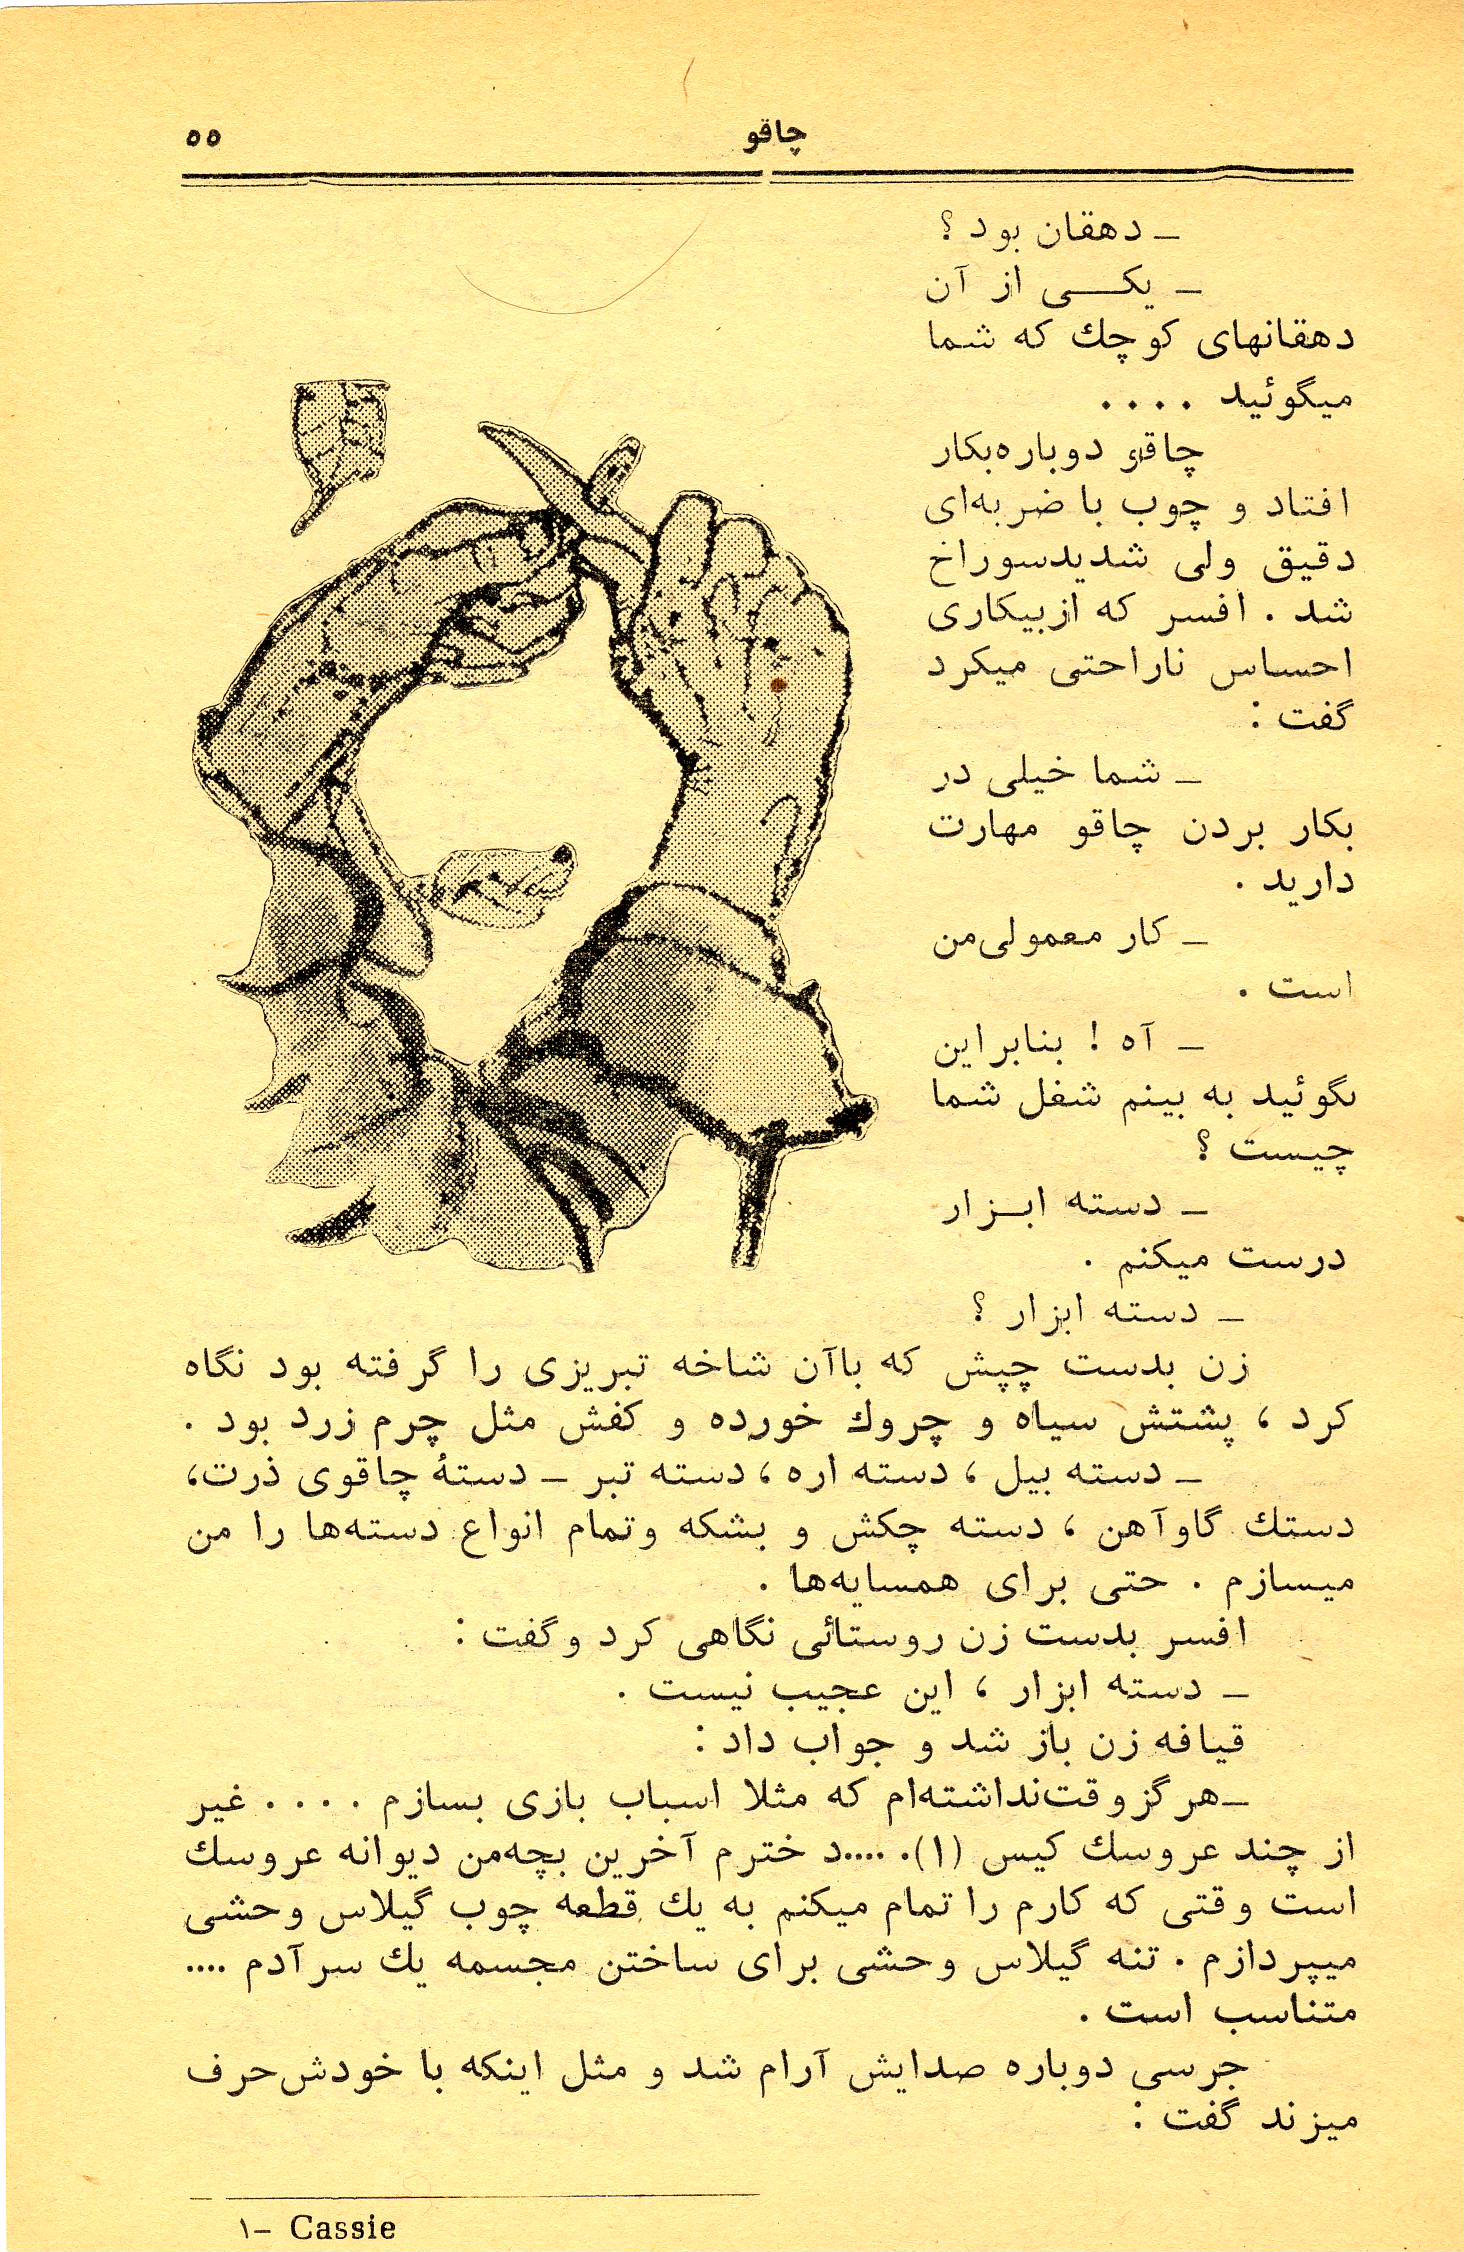 چاقو
۵۵
ـ دهقان بود ؟
ـ یکـــی از آن
دهقانهای کوچك که شما
میگوئید ....
چاقو دوباره‌بکار
افتاد و چوب با ضربه‌ای
دقیق ولی شدیدسوراخ
شد . افسر که ازبیکاری
احساس ناراحتی میکرد
گفت :
ـ شما خیلی در
بکار بردن چاقو مهارت
دارید .
ـ کار معمولی‌من
است .
ـ آه ! بنابراین
بگوئید به بینم شغل شما
چیست ؟
ـ دسته ابـزار
درست میکنم .
ـ دسته ابزار ؟
زن بدست چپش که باآن شاخه تبریزی را گرفته بود نگاه
کرد ، پشتش سیاه و چروك خورده و کفش مثل چرم زرد بود .
ـ دسته بیل ، دسته اره ، دسته تبر ـ دستۀ چاقوی ذرت،
دستك گاوآهن ، دسته چکش و بشکه وتمام انواع دسته‌ها را من
میسازم . حتی برای همسایه‌ها .
افسر بدست زن روستائی نگاهی کرد وگفت :
ـ دسته ابزار ، این عجیب نیست .
قیافه زن باز شد و جواب داد :
ـهرگزوقت‌نداشته‌ام که مثلا اسباب بازی بسازم .... غیر
از چند عروسك کیس (۱). ....دخترم آخرین بچه‌من دیوانه عروسك
است وقتی که کارم را تمام میکنم به یك قطعه چوب گیلاس وحشی
میپردازم . تنه گیلاس وحشی برای ساختن مجسمه یك سرآدم ....
متناسب است .
جرسی دوباره صدایش آرام شد و مثل اینکه با خودش‌حرف
میزند گفت :
۱ـ Cassie